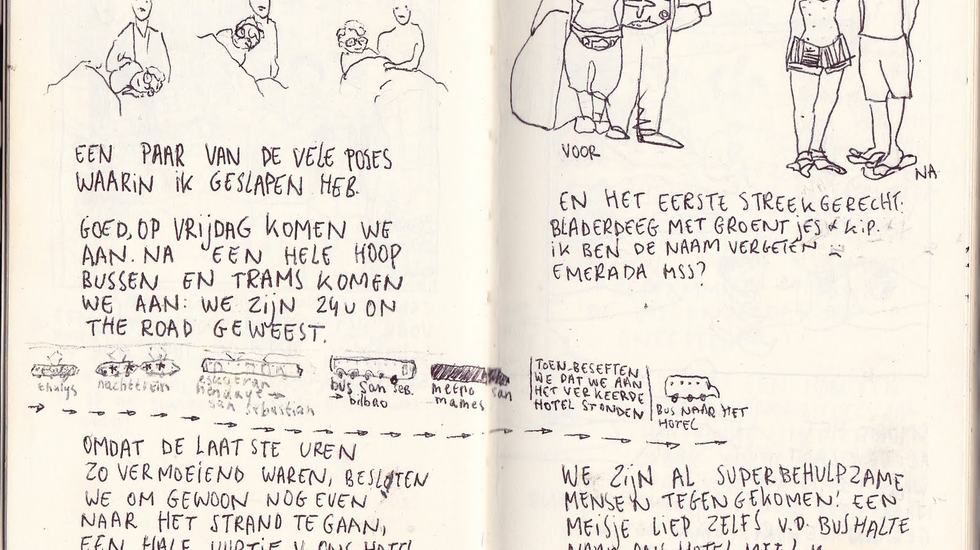 EEN PAAR VAN DE VELE POSES
WAARIN IK GESLAPEN HEB.
GOED, OP VRIJDAG KOMEN WE
AAN. NA EEN HELE HOOP
BUSSEN EN TRAMS KOMEN
WE AAN: WE ZIJN 24U ON
THE ROAD GEWEEST.
thalys
nachttrein
euskotran
hendaye →
san sebastian
bus san seb.
→ bilbao
metro san
mames
TOEN BESEFTEN
WE DAT WE AAN
HET VERKEERDE
HOTEL STONDEN
BUS NAAR HET
HOTEL
OMDAT DE LAATSTE UREN
ZO VERMOEIEND WAREN, BESLOTEN
WE OM GEWOON NOG EVEN
NAAR HET STRAND TE GAAN,
EEN HALF UURTJE V. ONS HOTEL
VOOR
NA
EN HET EERSTE STREEKGERECHT:
BLADERDEEG MET GROENTJES & KIP.
IK BEN DE NAAM VERGETEN
EMERADA MSS?
WE ZIJN AL SUPERBEHULPZAME
MENSEN TEGENGEKOMEN! EEN
MEISJE LIEP ZELFS V.D. BUSHALTE
NAAR ONS HOTEL